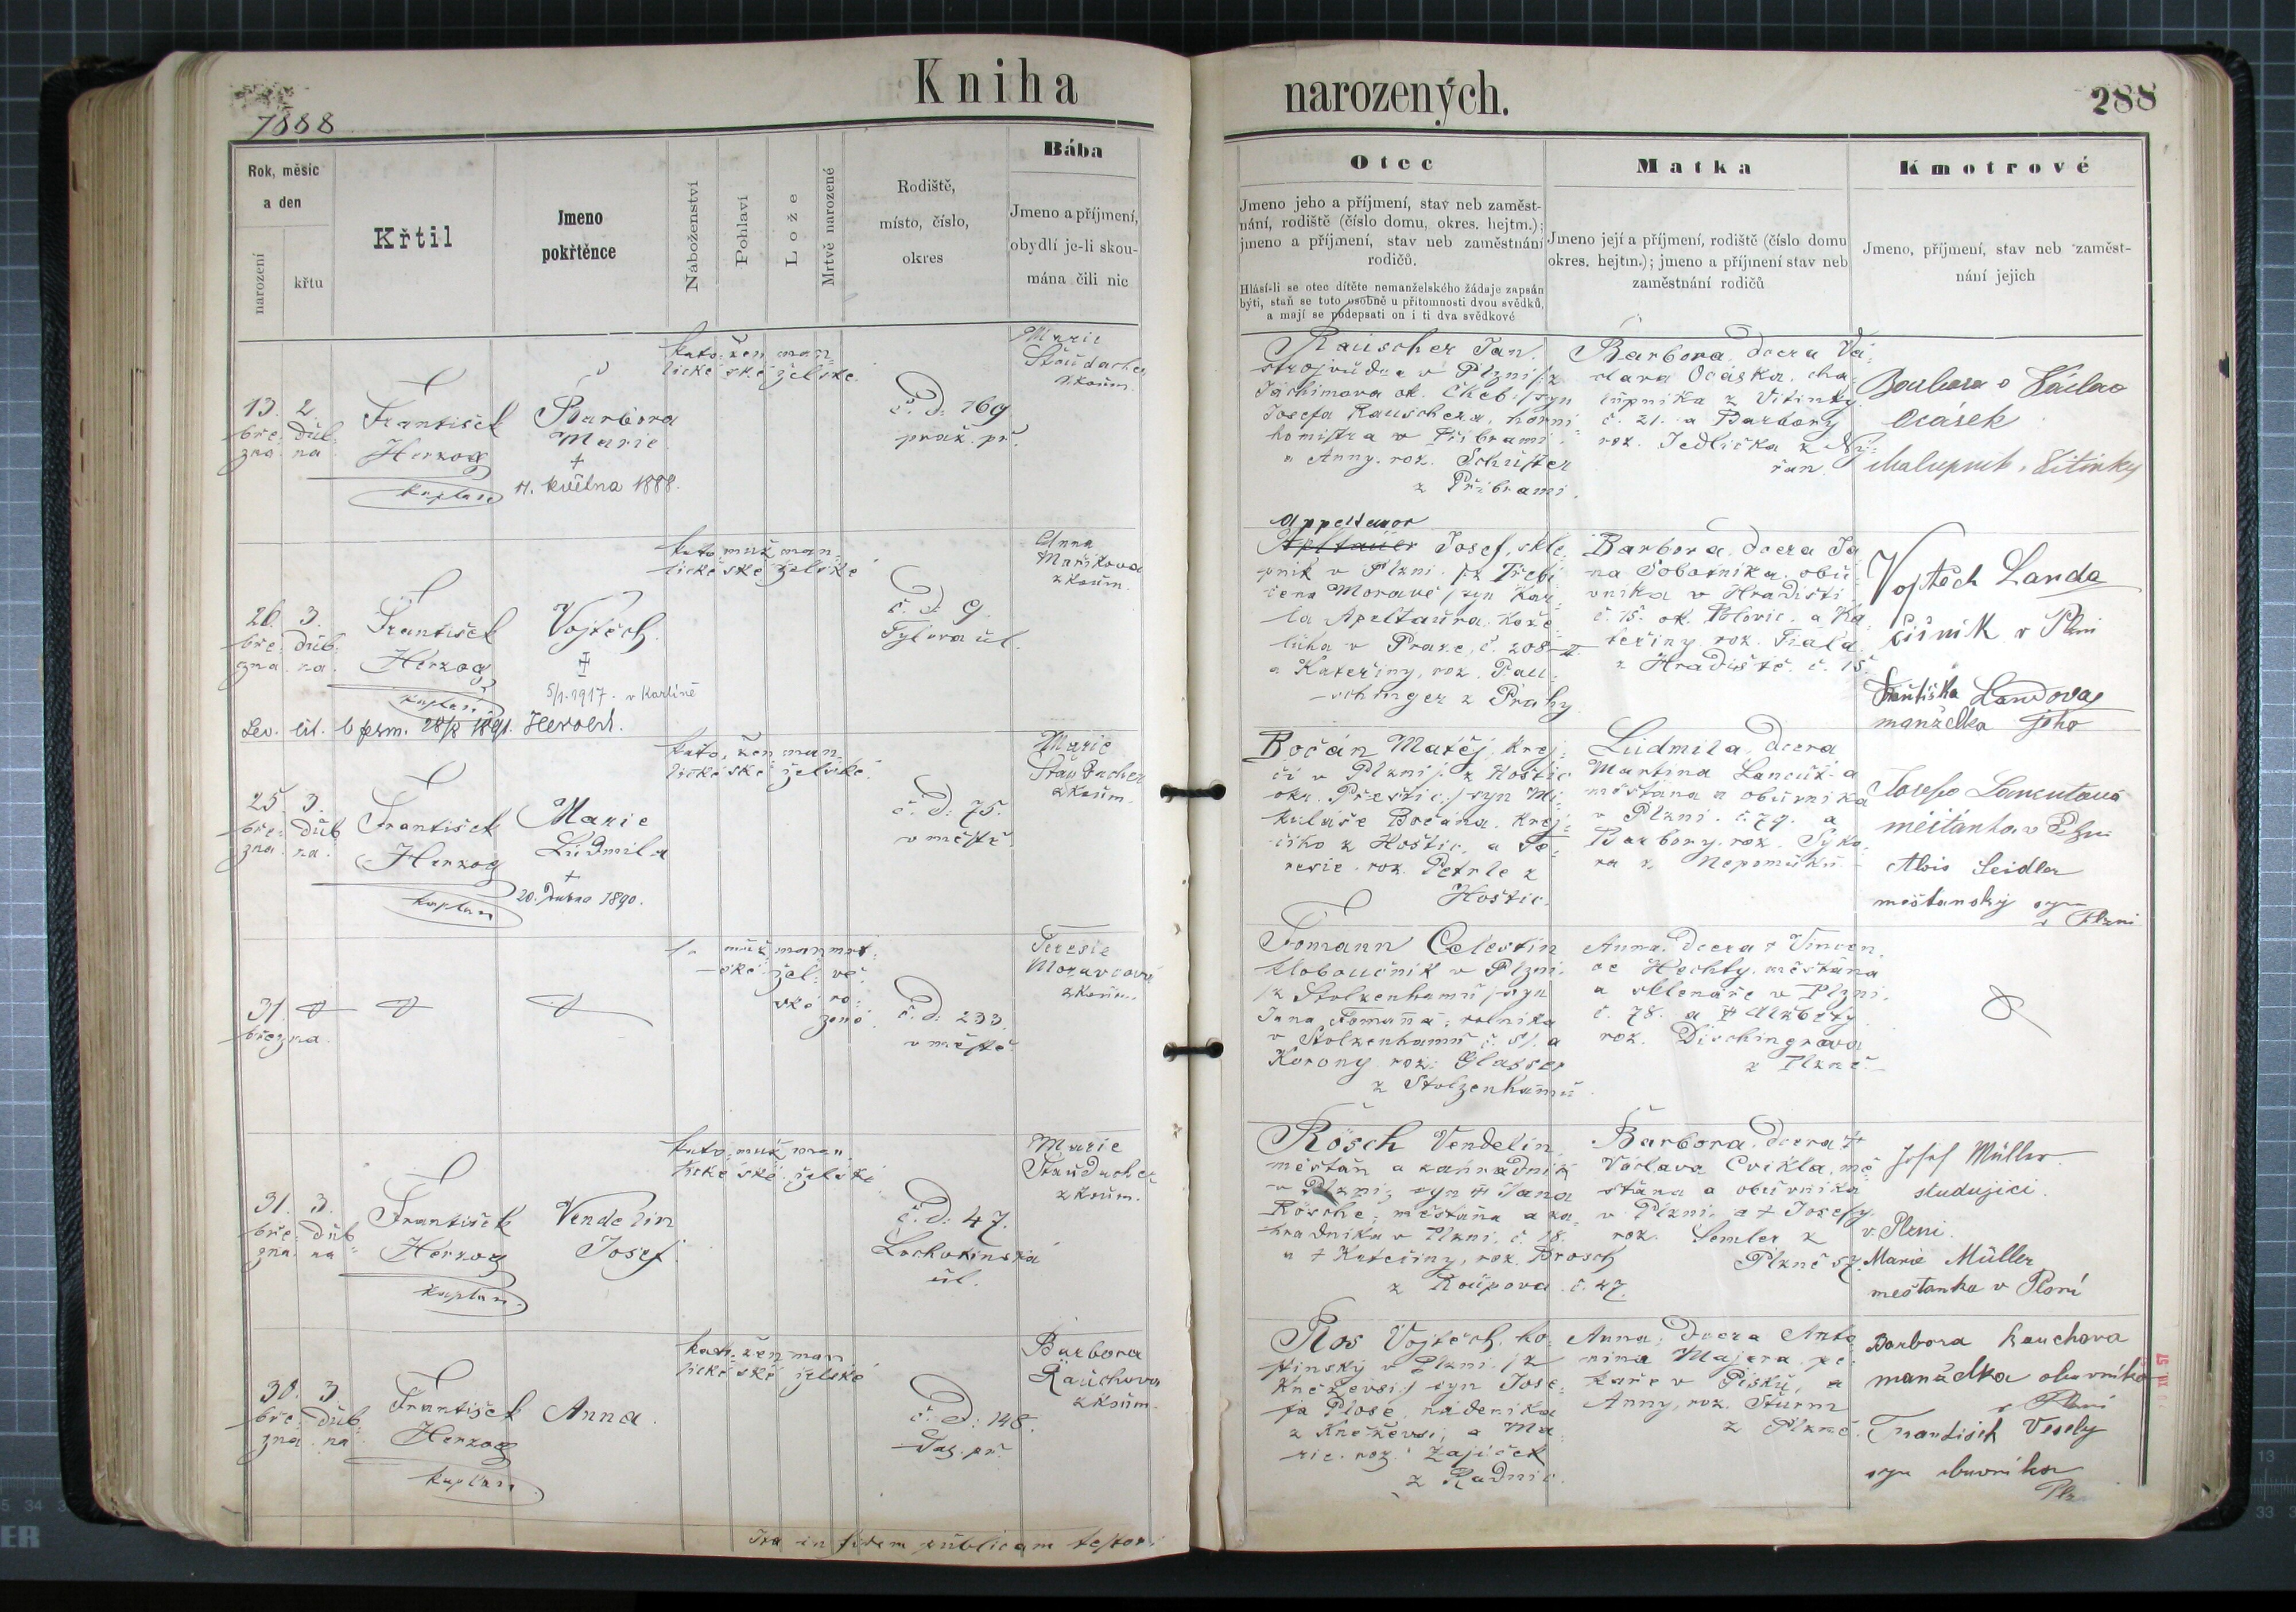 Kniha
narozených.
288
1888
Rok, měsíc
a den
narození
křtu
Křtil
Jmeno
pokřtěnce
Náboženství
Pohlaví
Lože
Mrtvě narozené
Rodiště,
místo, číslo,
okres
Bába
Jmeno a příjmení,
obydlí je-li skou-
mána čili nic
Otec
Jmeno jeho a příjmení, stav neb zaměst-
nání, rodiště (číslo domu, okres. hejtm.);
jmeno a příjmení, stav neb zaměstnání
rodičů.
Hlásí-li se otec dítěte nemanželského žádaje zapsán
býti, staň se toto osobně u přítomnosti dvou svědků,
a mají se podepsati on i ti dva svědkové
Matka
Jmeno její a příjmení, rodiště (číslo domu
okres. hejtm.); jmeno a příjmení stav neb
zaměstnání rodičů
Kmotrové
Jmeno, příjmení, stav neb zaměst-
nání jejich
13. 2.
bře- dub-
zna na.
František
Herzog
kaplan
Barbora
Marie
+
11. května 1888.
kato- žen man-
lické ské želské.
č. d. 169
praž. př.
Marie
Štaudacher
zkoum.
Rauscher Jan.
strojvůdce v Plzni /z
Jáchimova ok. Cheb./ syn
Josefa Rauschera, horni-
homistra v Příbrami
a Anny. roz. Schuster
z Příbrami.
Barbora. dcera Vá-
clava Ocáska. cha-
lupníka z Vitinky
č. 21. a Barbory
roz. Jedlička z Ný-
řan.
Barbora a Václav
Ocásek
chalupník z Litinky
26. 3.
bře- dub-
zna. na.
František
Herzog
kaplan
Vojtěch.
5/1. 1917. v Karlíně
Lev. lit. b ferm. 28/8 1891. Herold.
kato- muž man-
lické ské želské
č. d. 9.
Tylova ul.
Anna
Maříkova
zkoum.
Appeltauer
Apltauer Josef, skle-
pník v Plzni. /z Třebí-
čena Moravě / syn Kar-
la Apeltaura. kože-
luha v Praze, č. 208-II
a Kateřiny, roz. Pau-
schinger z Prahy
Barbora. dcera Ja-
na Sobotníka. obu-
vníka v Hradišti
č. 15. ok. Blovic. a Ka-
teřiny roz. Fiala
z Hradiště. č. 15.
Vojtěch Landa
číšník v Plzni
Františka Landova
manželka jeho
25. 3.
bře- dub-
zna. na.
František
Herzog
kaplan
Marie
Ludmila
+
20. dubna 1890.
kato- žen man-
lické ské želské.
č. d. 75.
v městě
Marie
Staudacher
zkoum.
Bočán Matěj. krej-
čí v Plzni /: z Hoštic
okr. Přeštic./ syn Mi-
kuláše Bočana. krej-
čího z Hoštic. a Te-
resie. roz. Petrle z
Hoštic.
Ludmila, dcera
Martina Lancút-a
měšťana a obuvníka
v Plzni. č. 79. a
Barbory. roz. Sýko-
ra z Nepomuku.
Josefa Lancutova
měšťanka v Plzni
Alois Seidler
mešťanský syn
z Plzni
31.
března.
muž man mrt-
ské žel- vě-
ské ro-
zené.
č. d. 233.
v městě
Teresie
Moravcová
zkoum.
Fomann Celestin
kloboučník v Plzni.
/z Stolzenhamu / syn
Jana Fomaña. rolníka
v Stolzenhamu č. 51. a
Korony roz: Glasser
z Stolzenhamu
Anna. dcera + Vincen-
ce Hechty. měšťana
a sklenáře v Plzni.
č. 78. a + Alžběty
roz. Dischingrova
z Plzně.
31. 3.
bře- dub-
zna. na
František
Herzog
kaplan.
Vendelín
Josef
kato- muž man-
lické ské želské
č. d. 47.
Lochotínská
ul.
Marie
Staudacher
zkoum.
Rösch Vendelín.
měšťan a zahradník
v Plzni, syn + Jana
Rösche, měšťana a za-
hradníka v Plzni. č. 18.
a + Kateřiny, roz. Brosch
z Roupova. č. 47.
Barbora, dcera +
Václava Cvikla, mě-
šťana a obuvníka
v Plzni. a + Josefy
roz. Semler z
Plzně 57.
Josef Müller
studující
v Plzni.
Marie Müller
měšťanka v Plzni
30. 3.
bře- dub-
zna. na
František
Herzog
kaplan
Anna.
kato- žen man
lické ské želské
č. d. 148.
Saz. př.
Barbora
Rauchova
zkoum.
Plos Vojtěch. ho-
stinský v Plzni. /z
Kněževsi / syn Jose-
fa Plose, nádeníka
z Kněževsi, a Ma-
rie. roz. Zajíček
z Radnic.
Anna, dcera Anto-
nína Majera pe-
kaře v Písku, a
Anny, roz. Šturm
z Plzně.
Barbora Rauchova
manželka obuvníka
v Plzni
František Veselý
syn obuvníka
Plz
Ita in fidem publicam testor: